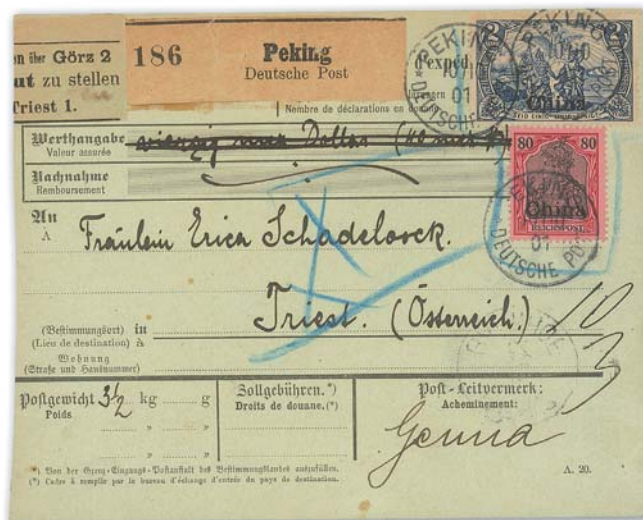 en über Görz 2
ut zu stellen
Triest 1.
186
Peking
Deutsche Post
d'exped.
Nombre de déclarations en douane
PEKING
10/10
01
DEUTSCHE POST
2
China
PEKING
80 80
China
REICHSPOST
PEKING
01
DEUTSCHE POST
Werthangabe
Valeur assurée
vierzig mex Dollar (40 mex $)
Nachnahme
Remboursement
An
A
Fräulein Erica Schadeloock.
Triest. (Österreich.)
(Bestimmungsort) in
(Lieu de destination) à
Wohnung
(Straße und Hausnummer)
Postgewicht 3½ kg g
Poids
" "
" "
Zollgebühren.*)
Droits de douane.(*)
Post-Leitvermerk:
Acheminement:
Genua
*) Von der Grenz-Eingangs-Postanstalt des Bestimmungslandes auszufüllen.
(*) Cadre à remplir par le bureau d'échange d'entrée du pays de destination.
A. 20.